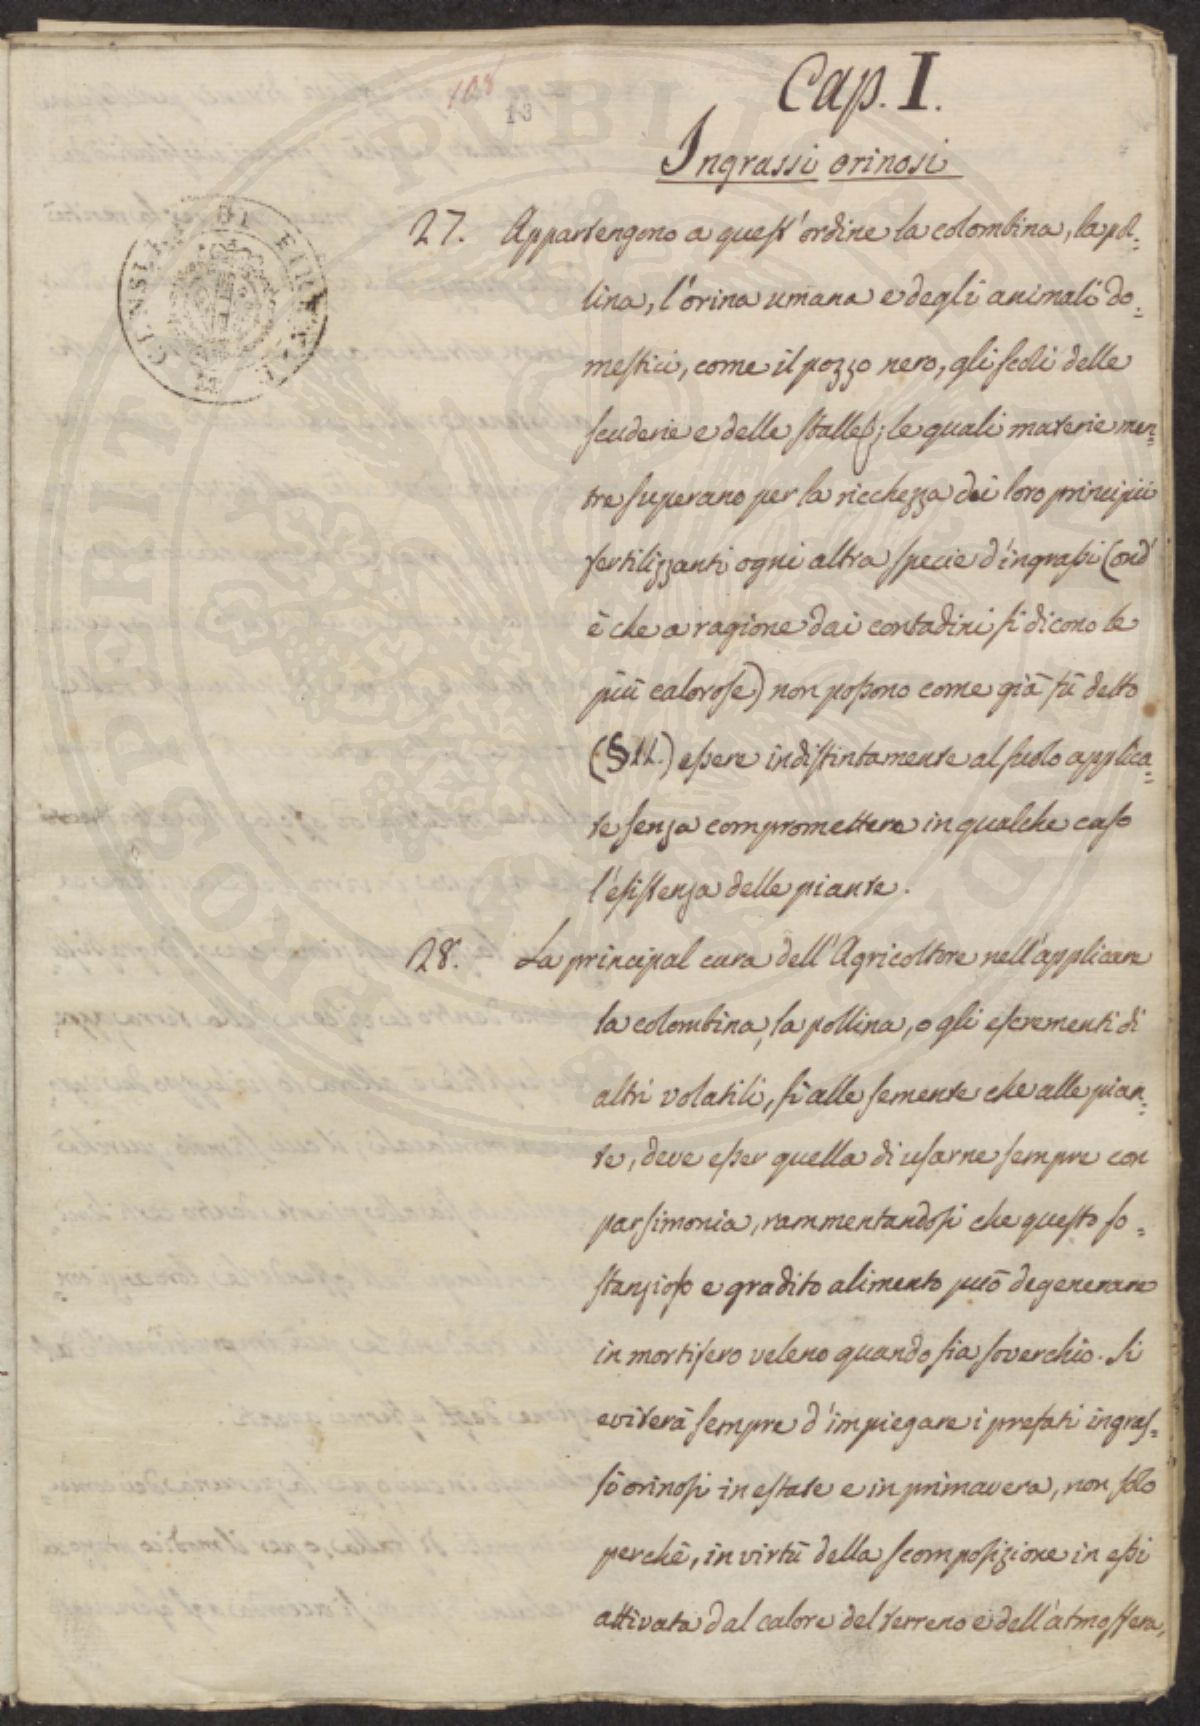 108
13
Cap. I.
Ingrassi orinosi
27. Appartengono a quest'ordine la colombina, la pol=
lina, l'orina umana e degli animali do=
mestici, come il pozzo nero, gli scoli delle
scuderie e delle stalle; le quali materie men=
tre superano per la ricchezza dei loro principii
fertilizzanti ogni altra specie d'ingrassi (ond'
è che a ragione dai contadini si dicono le
più calorose) non possono come già fù detto
(§ 11.) essere indistintamente al suolo applica=
te senza compromettere in qualche caso
l'esistenza delle piante.
28. La principal cura dell'Agricoltore nell'applicare
la colombina, la pollina, o gli escrementi di
altri volatili, sì alle semente che alle pian=
te, deve esser quella di usarne sempre con
parsimonia, rammentandosi che questo so=
stanzioso e gradito alimento può degenerare
in mortifero veleno quando sia soverchio. Si
eviterà sempre d'impiegare i prefati ingras=
si orinosi in estate e in primavera, non solo
perchè, in virtù della scomposizione in essi
attivata dal calore del terreno e dell'atmosfera,